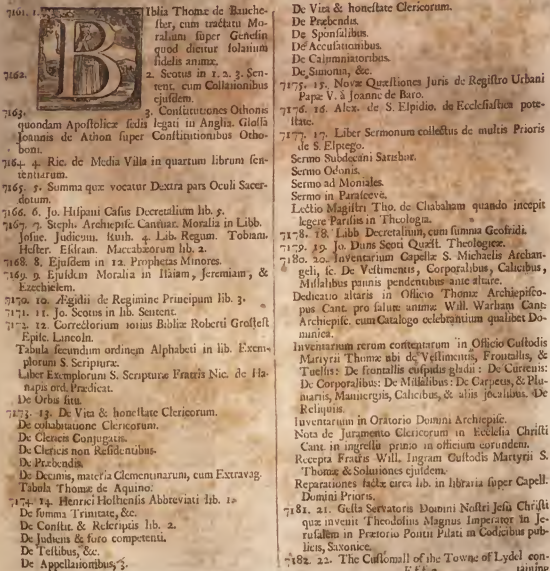 7161. 1. BIblia Thomæ de Bauche-
ster, cum tractatu Mo-
ralium super Genesin
quod dicitur solatium
fidelis animæ.
7162. 2. Scotus in 1. 2. 3. Sen-
tent. cum Collationibus
ejusdem.
7163. 3. Constitutiones Othonis
quondam Apostolicæ sedis legati in Anglia. Glossa
Joannis de Athon super Constitutionibus Otho-
boni.
7164. 4. Ric. de Media Villa in quartum librum sen-
tentiarum.
7165. 5. Summa quæ vocatur Dextra pars Oculi Sacer-
dotum.
7166. 6. Jo. Hispani Casus Decretalium lib. 5.
7167. 7. Steph. Archiepisc. Cantuar. Moralia in Libb.
Josue. Judicum. Ruth. 4. Lib. Regum. Tobiam.
Hester. Esdram. Maccabæorum lib. 2.
7168. 8. Ejusdem in 12. Prophetas Minores.
7169. 9. Ejusdem Moralia in Isaiam, Jeremiam, &
Ezechielem.
7170. 10. Ægidii de Regimine Principum lib. 3.
7171. 11. Jo. Scotus in lib. Sentent.
7172. 12. Correctorium totius Bibliæ Roberti Grosfest
Episc. Lincoln.
Tabula secundum ordinem Alphabeti in lib. Exem-
plorum S. Scripturæ.
Liber Exemplorum S. Scripturæ Fratris Nic. de Ha-
napis ord. Prædicat.
De Orbis situ.
7173. 13. De Vita & honestate Clericorum.
De cohabitatione Clericorum.
De Clericis Conjugatis.
De Clericis non Residentibus.
De Præbendis.
De Decimis, materia Clementinarum, cum Extravag.
Tabula Thomæ de Aquino.
7174. 14. Henrici Hosthensis Abbreviati lib. 1.
De summa Trinitate, &c.
De Constit. & Rescriptis lib. 2.
De Judiciis & foro competenti.
De Testibus, &c.
De Appellationibus, 3.
De Vita & honestate Clericorum.
De Præbendis.
De Sponsalibus.
De Accusationibus.
De Calumniatoribus.
De Simonia, &c.
7175. 15. Novæ Quæstiones Juris de Registro Urbani
Papæ V. à Joanne de Baro.
7176. 16. Alex. de S. Elpidio, de Ecclesiastica pote-
state.
7177. 17. Liber Sermonum collectus de multis Prioris
de S. Elptego.
Sermo Subdecani Sarisbur.
Sermo Odonis.
Sermo ad Moniales.
Sermo in Parasceve.
Lectio Magistri Tho. de Chabaham quando incepit
legere Parisiis in Theologia.
7178. 18. Libb Decretalium, cum summa Geofridi.
7179. 19. Jo. Duns Scoti Quæst. Theologicæ.
7180. 20. Inventarium Capellæ S. Michaelis Archan-
geli, sc. De Vestimentis, Corporalibus, Calicibus,
Missalibus pannis pendentibus ante altare.
Dedicatio altaris in Officio Thomæ Archiepisco-
pus Cant. pro salute animæ Will. Warham Cant.
Archiepisc. cum Catalogo celebrantium qualibet Do-
minica.
Inventarium rerum contentarum in Officio Custodis
Martyrii Thomæ ubi de Vestimentis, Frontallis, &
Tuellis: De frontallis cuspidis gladii: De Curtenis:
De Corporalibus: De Missalibus: De Carpetis, & Plu-
mariis, Manutergiis, Calicibus, & aliis jocalibus. De
Reliquiis.
Inventarium in Oratorio Domini Archiepisc.
Nota de Juramento Clericorum in Ecclesia Christi
Cant. in ingressu primo in officium eorundem.
Recepta Fratris Will. Ingram Custodis Martyrii S.
Thomæ & Solutiones ejusdem.
Reparationes factæ circa lib. in libraria super Capell.
Domini Prioris.
7181. 21. Gesta Servatoris Domini Nostri Jesu Christi
quæ invenit Theodosius Magnus Imperator in Je-
rusalem in Prætorio Pontii Pilati in Codicibus pub-
licis, Saxonice.
7182. 22. The Customall of the Towne of Lydel con-
taining